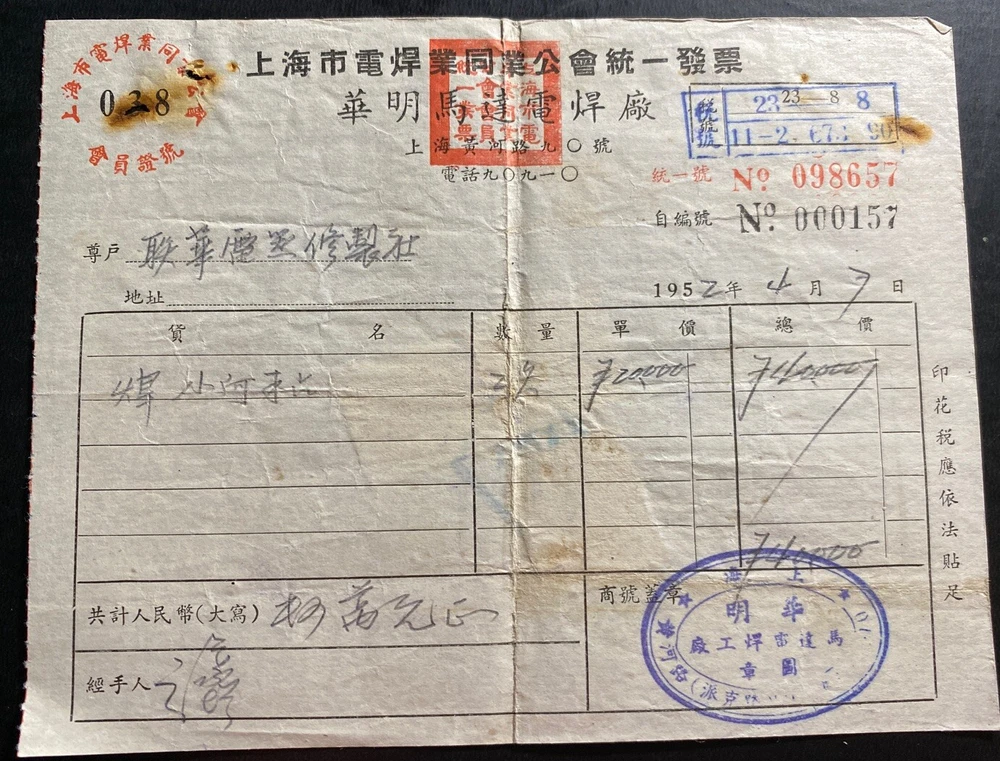 上海市電焊業同業公會統一發票
上海市電焊業同
038
會員證號
華明馬達電焊廠
上海黃河路九〇號
電話九〇九一〇
稅號
23 23—8 8
統一號 No 098657
自編號 No 000157
尊戶 聯華電器修製社
地址
1952年4月7日
貨名 數量 單價 總價
焊 ¥20000 ¥40000
¥40000
共計人民幣(大寫) 肆萬元正
商號蓋章
經手人
印花稅應依法貼足
上海
華明
馬達電焊工廠
圖章
黃河路(派克路